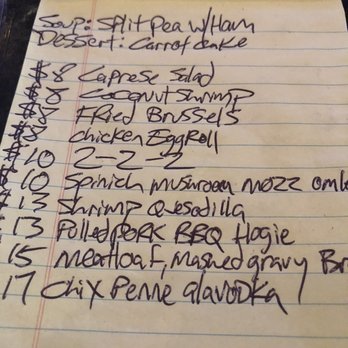 Soup: Split Pea w/Ham
Dessert: Carrot Cake
$8 Caprese Salad
$8 Coconut Shrimp
$8 Fried Brussels
$8 Chicken EggRoll
$10 2-2-2
$10 Spinich mushroom mozz omle
$13 Shrimp Quesadilla
$13 Pulled PORK BBQ Hogie
15 Meatloaf, mashed gravy Br
17 Chix Penne alavodka